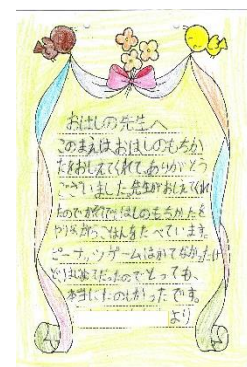 おはしの先生へ
このまえは、おはしのもちか
たをおしえてくれて、ありがとう
ございました。先生がおしえてくれ
たので、かぞくではしのもちかたを
やりながらごはんをたべています。
ピーナッツゲームはかてなかったけ
どはじめてだったのでとっても、
本当にたのしかったです。
より